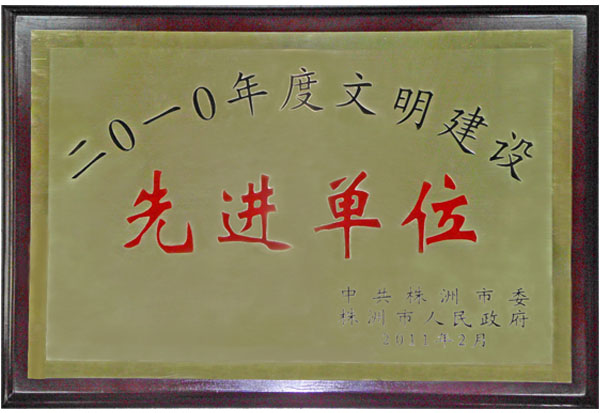 二〇一〇年度文明建设
先进单位
中共株洲市委
株洲市人民政府
2011年2月